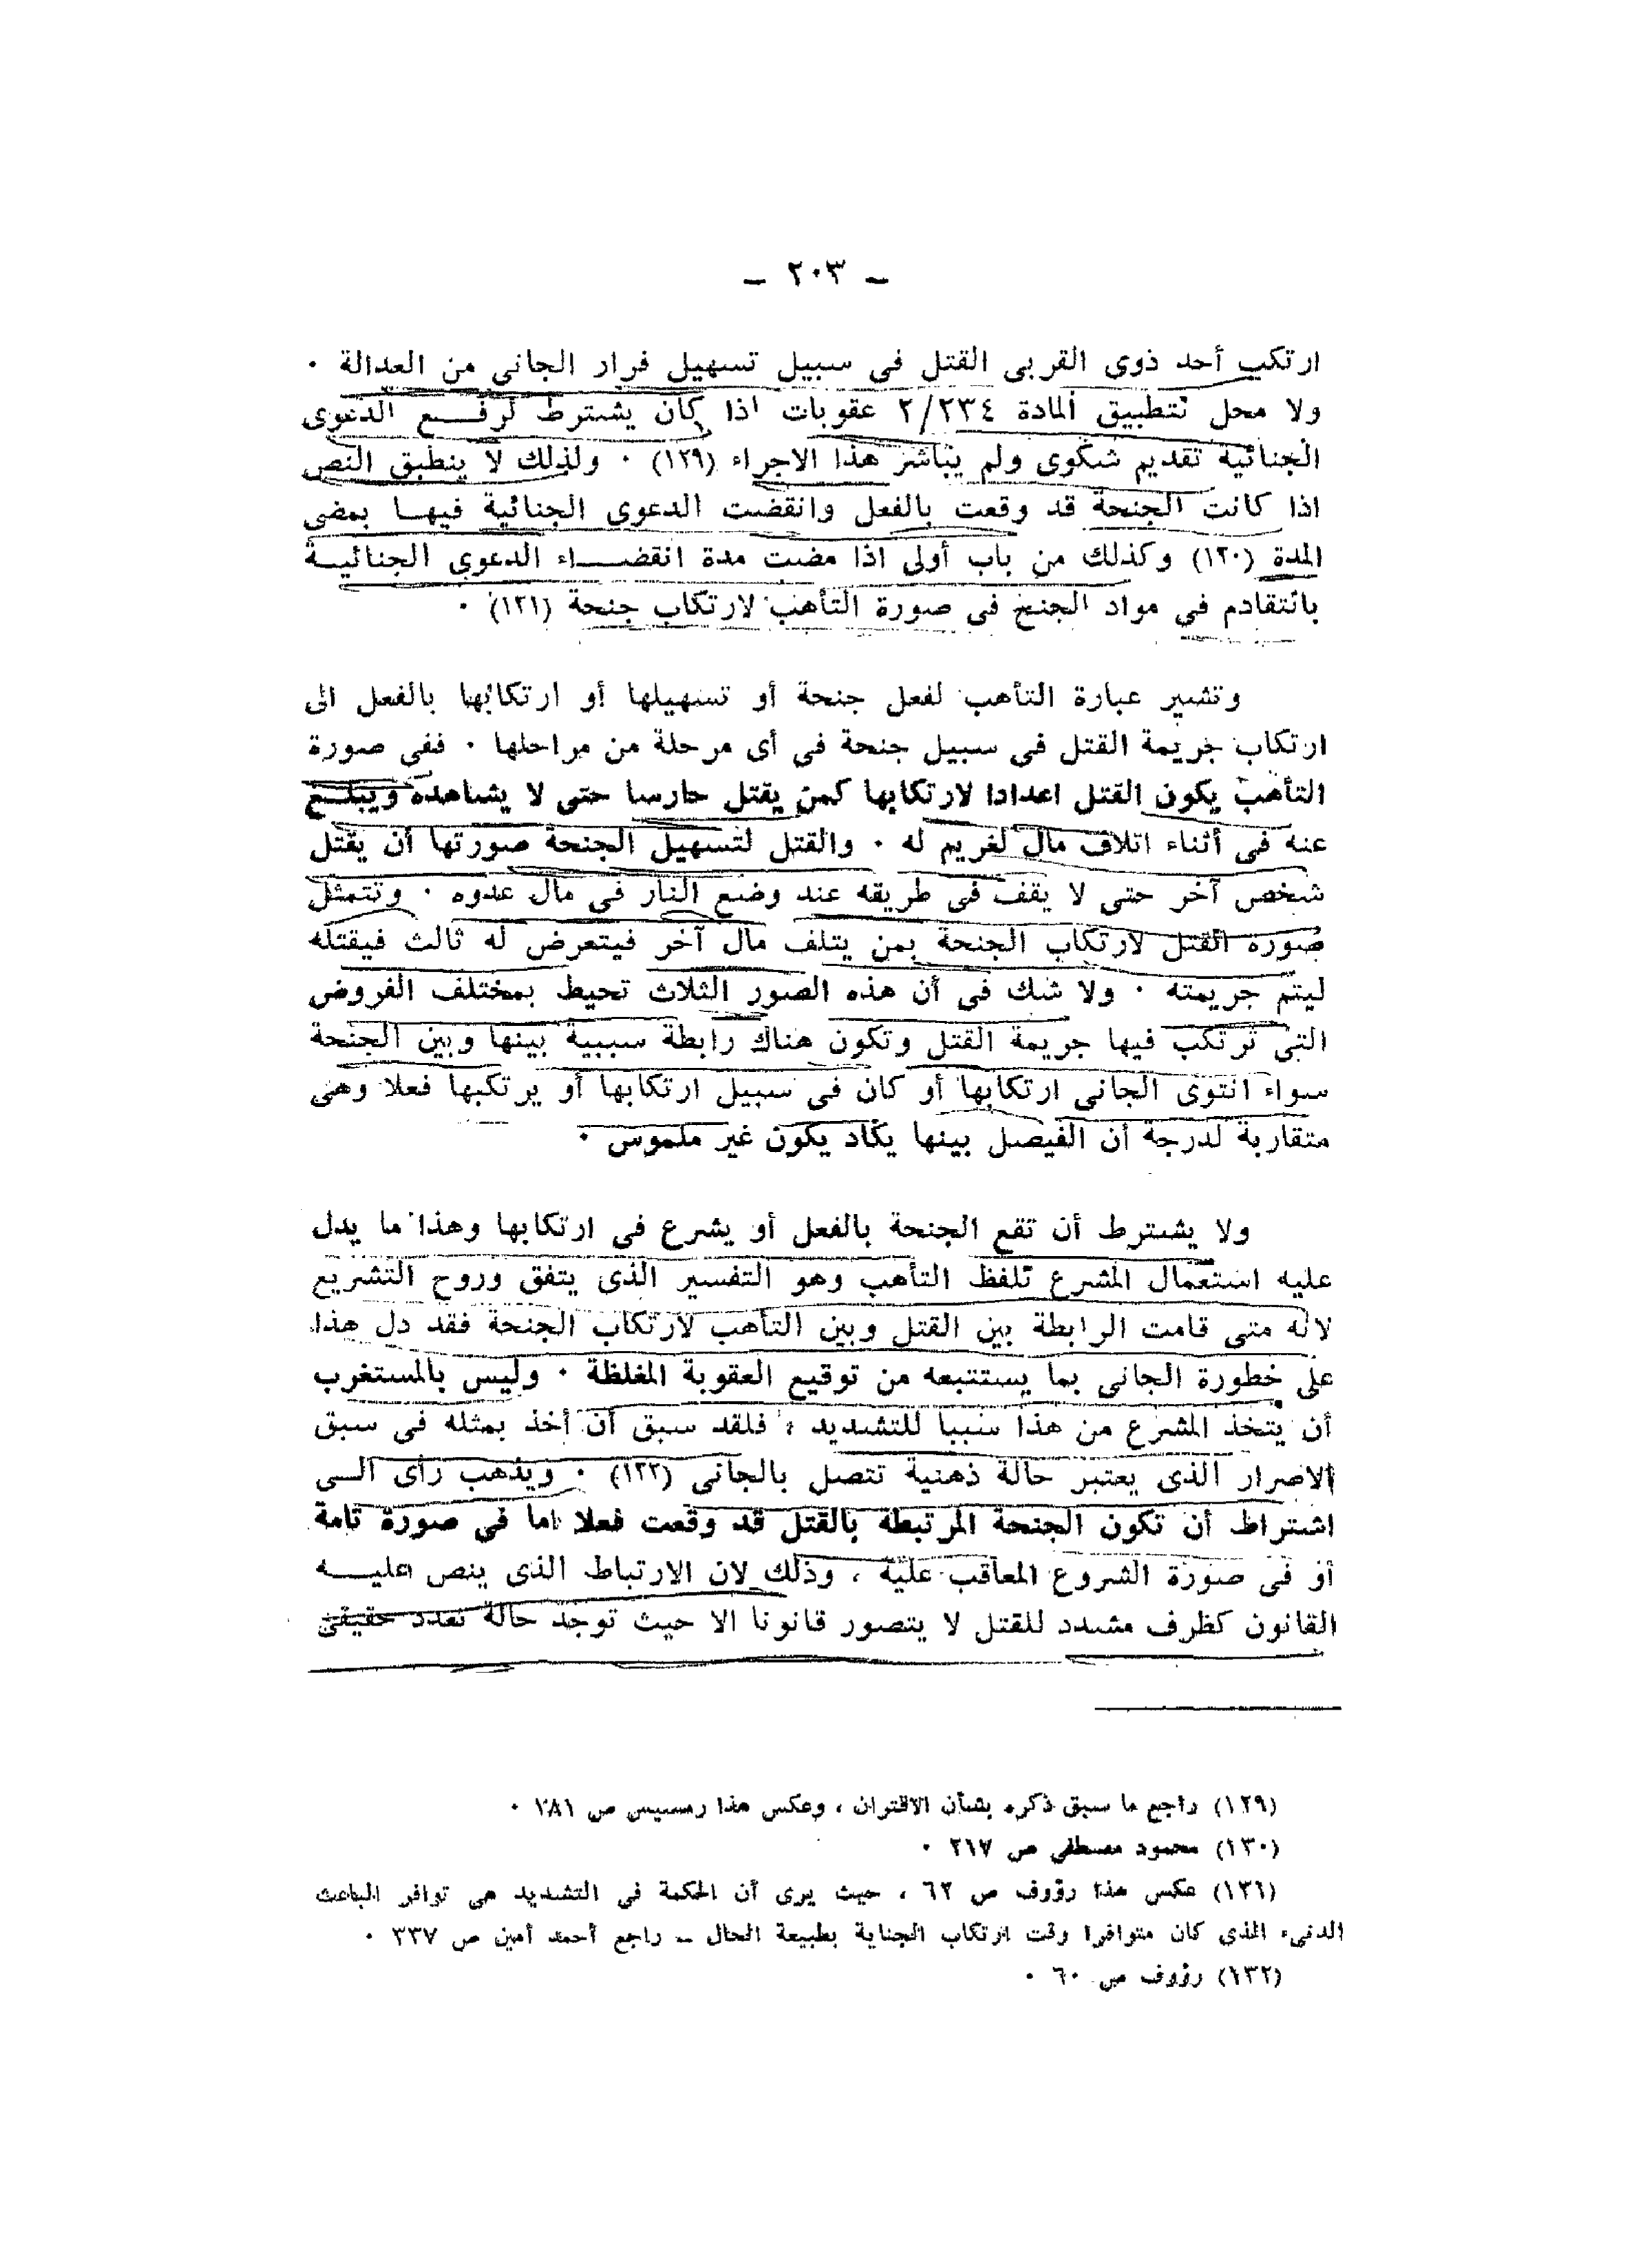 — ٢٠٣ —
ارتكب أحد ذوى القربى القتل فى سبيل تسهيل فرار الجانى من العدالة ٠
ولا محل لتطبيق المادة ٢/٢٣٤ عقوبات اذا كان يشترط لرفـــع الدعوى
الجنائية تقديم شكوى ولم يباشر هذا الاجراء (١٢٩) ٠ ولذلك لا ينطبق النص
اذا كانت الجنحة قد وقعت بالفعل وانقضت الدعوى الجنائية فيهـا بمضى
المدة (١٣٠) وكذلك من باب أولى اذا مضت مدة انقضـــاء الدعوى الجنائيـة
بالتقادم فى مواد الجنح فى صورة التأهب لارتكاب جنحة (١٣١) ٠
وتشير عبارة التأهب لفعل جنحة أو تسهيلها أو ارتكابها بالفعل الى
ارتكاب جريمة القتل فى سبيل جنحة فى أى مرحلة من مراحلها ٠ ففى صورة
التأهب يكون القتل اعدادا لارتكابها كمن يقتل حارسا حتى لا يشاهده ويبلـغ
عنه فى أثناء اتلاف مال لغريم له ٠ والقتل لتسهيل الجنحة صورتها أن يقتل
شخص آخر حتى لا يقف فى طريقه عند وضع النار فى مال عدوه ٠ وتتمثل
صورة القتل لارتكاب الجنحة بمن يتلف مال آخر فيتعرض له ثالث فيقتله
ليتم جريمته ٠ ولا شك فى أن هذه الصور الثلاث تحيط بمختلف الفروض
التى ترتكب فيها جريمة القتل وتكون هناك رابطة سببية بينها وبين الجنحة
سواء انتوى الجانى ارتكابها أو كان فى سبيل ارتكابها أو يرتكبها فعلا وهى
متقاربة لدرجة أن الفيصل بينها يكاد يكون غير ملموس ٠
ولا يشترط أن تقع الجنحة بالفعل أو يشرع فى ارتكابها وهذا ما يدل
عليه استعمال المشرع للفظ التأهب وهو التفسير الذى يتفق وروح التشريع
لانه متى قامت الرابطة بين القتل وبين التأهب لارتكاب الجنحة فقد دل هذا
على خطورة الجانى بما يستتبعه من توقيع العقوبة المغلظة ٠ وليس بالمستغرب
أن يتخذ المشرع من هذا سببا للتشديد ، فلقد سبق أن أخذ بمثله فى سبق
الاصرار الذى يعتبر حالة ذهنية تتصل بالجانى (١٣٢) ٠ ويذهب رأى الـى
اشتراط أن تكون الجنحة المرتبطة بالقتل قد وقعت فعلا اما فى صورة تامة
أو فى صورة الشروع المعاقب عليه ، وذلك لان الارتباط الذى ينص عليــه
القانون كظرف مشدد للقتل لا يتصور قانونا الا حيث توجد حالة تعدد حقيقى
(١٢٩) راجع ما سبق ذكره بشأن الاقتران ، وعكس هذا رمسيس ص ٢٨١ ٠
(١٣٠) محمود مصطفى ص ٢٦٧ ٠
(١٣١) عكس هذا رؤوف ص ٦٢ ، حيث يرى أن الحكمة فى التشديد هى توافر الباعث
الدنىء الذى كان متوافرا وقت ارتكاب الجناية بطبيعة الحال — راجع أحمد أمين ص ٣٣٧ ٠
(١٣٢) رؤوف ص ٦٠ ٠